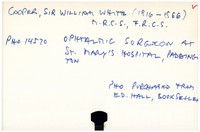 COOPER, SIR WILLIAM WHITE (1816-1886)
M.R.C.S., F.R.C.S.
PHO 14570 OPHTALMIC SURGEON AT
ST. MARY'S HOSPITAL, PADDINGTON
PHO PURCHASED FROM
E.D. HALL, BOOKSELLER